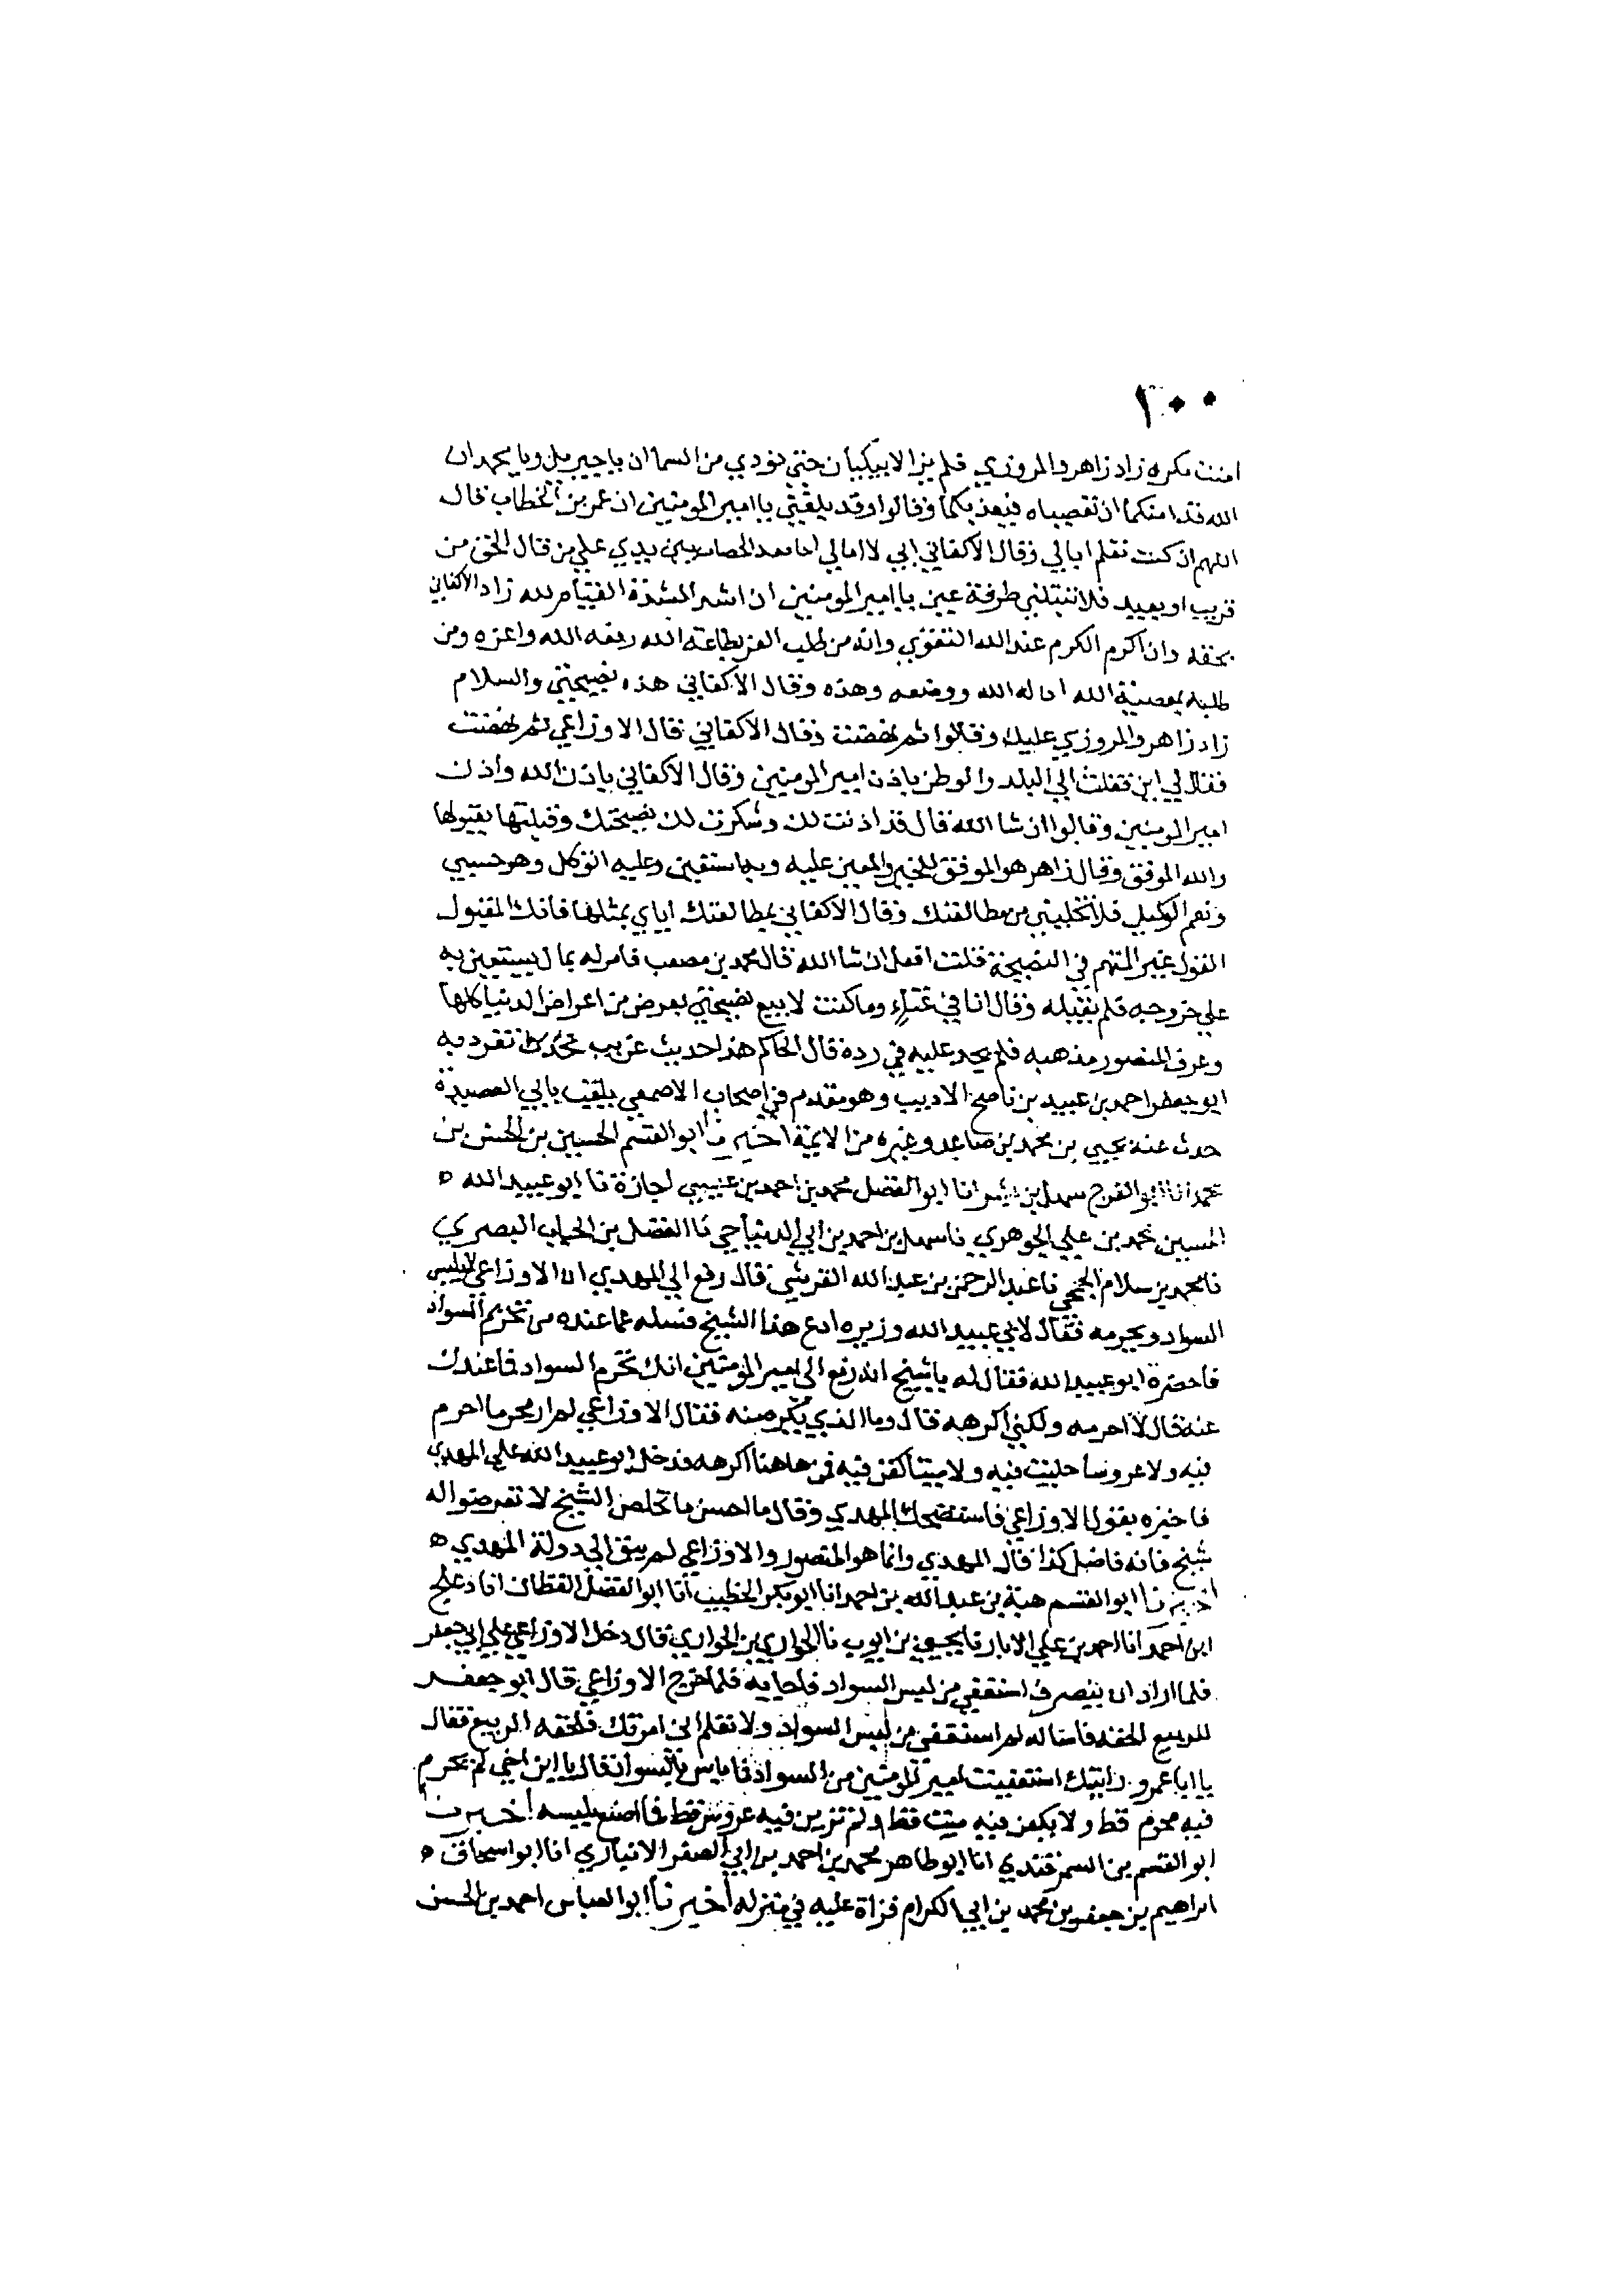 ١٠٠
امنت مكره زاد زاهر والمروزي فلم يزالا يبكيان حتى نودي من السما ان يا جبريل ويا محمد ان
الله قد امنكما ان تعصياه فيعذبكما وقالوا وقد بلغني يا امير المومنين ان عمر بن الخطاب قال
اللهم ان كنت تعلم ابالي وقال الاكفاني اني لا ابالي اذا قعد الخصمان بين يدي علي من قال الحق من
قريب او بعيد فلا تمهلني طرفة عين يا امير المومنين ان اشد الشدة القيام لله زاد الاكفاني
بحقه وان اكرم الكرم عند الله التقوي وانه من طلب العز بطاعة الله رفعه الله واعزه ومن
طلبه بمعصية الله اذله الله ووضعه وهذه وقال الاكفاني هذه نصيحتي والسلام
زاد زاهر والمروزي عليك وقالوا ثم نهضت وقال الاكفاني قال الاوزاعي ثم نهضت
فقال لي اين فقلت الي البلد والوطن باذن امير المومنين وقال الاكفاني باذن الله واذن
امير المومنين وقالوا ان شا الله قال قد اذنت لك وشكرت لك نصيحتك وقبلتها بقبولها
والله الموفق وقال زاهر هو الموفق للخير والمعين عليه وبه استعين وعليه اتوكل وهو حسبي
ونعم الوكيل فلا تخليني من مطالعتك وقال الاكفاني بمطالعتك اياي بمثلها فانك المقبول
القول غير المتهم في النصيحة فقلت افعل ان شا الله قال محمد بن مصعب فامر له بمال يستعين به
علي خروجه فلم يقبله وقال انا في غناء وما كنت لابيع نصيحتي بعرض من اعراض الدنيا كلها
وعرف المنصور مذهبه فلم يجد عليه في رده قال الحاكم هذا حديث غريب تفرد به
ابو جعفر احمد بن عبيد بن ناصح الاديب وهو مقدم في اصحاب الاصمعي يلقب بابي العصيدة
حدث عنه يحيي بن محمد بن صاعد وغيره من الايمة اخبرنا ابو القسم الحسين بن الحسن بن
محمد انا ابو الفرج سهل بن بشر انا ابو الفضل محمد بن احمد بن عيسي اجازة نا ابو عبيد الله ه
الحسين محمد بن علي الجوهري نا سهل بن احمد بن نا الفضل بن الحباب البصري
نا محمد بن سلام الجمحي نا عبد الرحمن بن عبد الله القرشي قال رفع الي المهدي ان الاوزاعي لا يلبس
السواد ويحرمه فقال لابي عبيد الله وزيره ادع هذا الشيخ فسله عما عنده من تحريم السواد
فاحضره ابو عبيد الله فقال له يا شيخ انه رفع الى امير المومنين انك تحرم السواد فما عندك
عنه قال لا احرمه ولكني اكرهه قال وما الذي يكره منه فقال الاوزاعي لم ار محرما احرم
فيه ولا عروسا جليت فيه ولا ميتا كفن فيه فمن هاهنا اكرهه فدخل ابو عبيد الله علي المهدي
فاخبره بقول الاوزاعي فاستضحك المهدي وقال ما احسن ما تخلص الشيخ لا تعرضوا له
شيخ فانه فاضل كذا قال المهدي وانما هو المنصور والاوزاعي لم يبق الي دولة المهدي ه
اخبرنا ابو القسم هبة بن عبد الله بن احمد انا ابو بكر الخطيب انا ابو الفضل القطان انا دعلج
ابن احمد انا احمد بن علي الابار نا يحيي بن ايوب نا الحواري بن الحواري قال دخل الاوزاعي علي ابي جعفر
فلما اراد ان ينصرف استعفي من لبس السواد فاجابه فلما خرج الاوزاعي قال ابو جعفر
للربيع الحقه فاساله لم استعفي من لبس السواد ولا تعلم اني امرتك فلحقه الربيع فقال
يا ابا عمرو رايتك استعفيت امير المومنين من السواد فما باس بالسواد قال يا ابن اخي لم يحرم
فيه محرم قط ولا يكفن فيه ميت قط ولم تزين فيه عروس قط فما اصنع بلبسه اخبرنا
ابو القسم بن السمرقندي انا ابو طاهر محمد بن احمد بن ابي الصقر الانباري انا ابو اسحاق ه
ابراهيم بن جعفر بن محمد بن ابي الكرام قراة عليه في منزله اخبرنا ابو العباس احمد بن الحسن